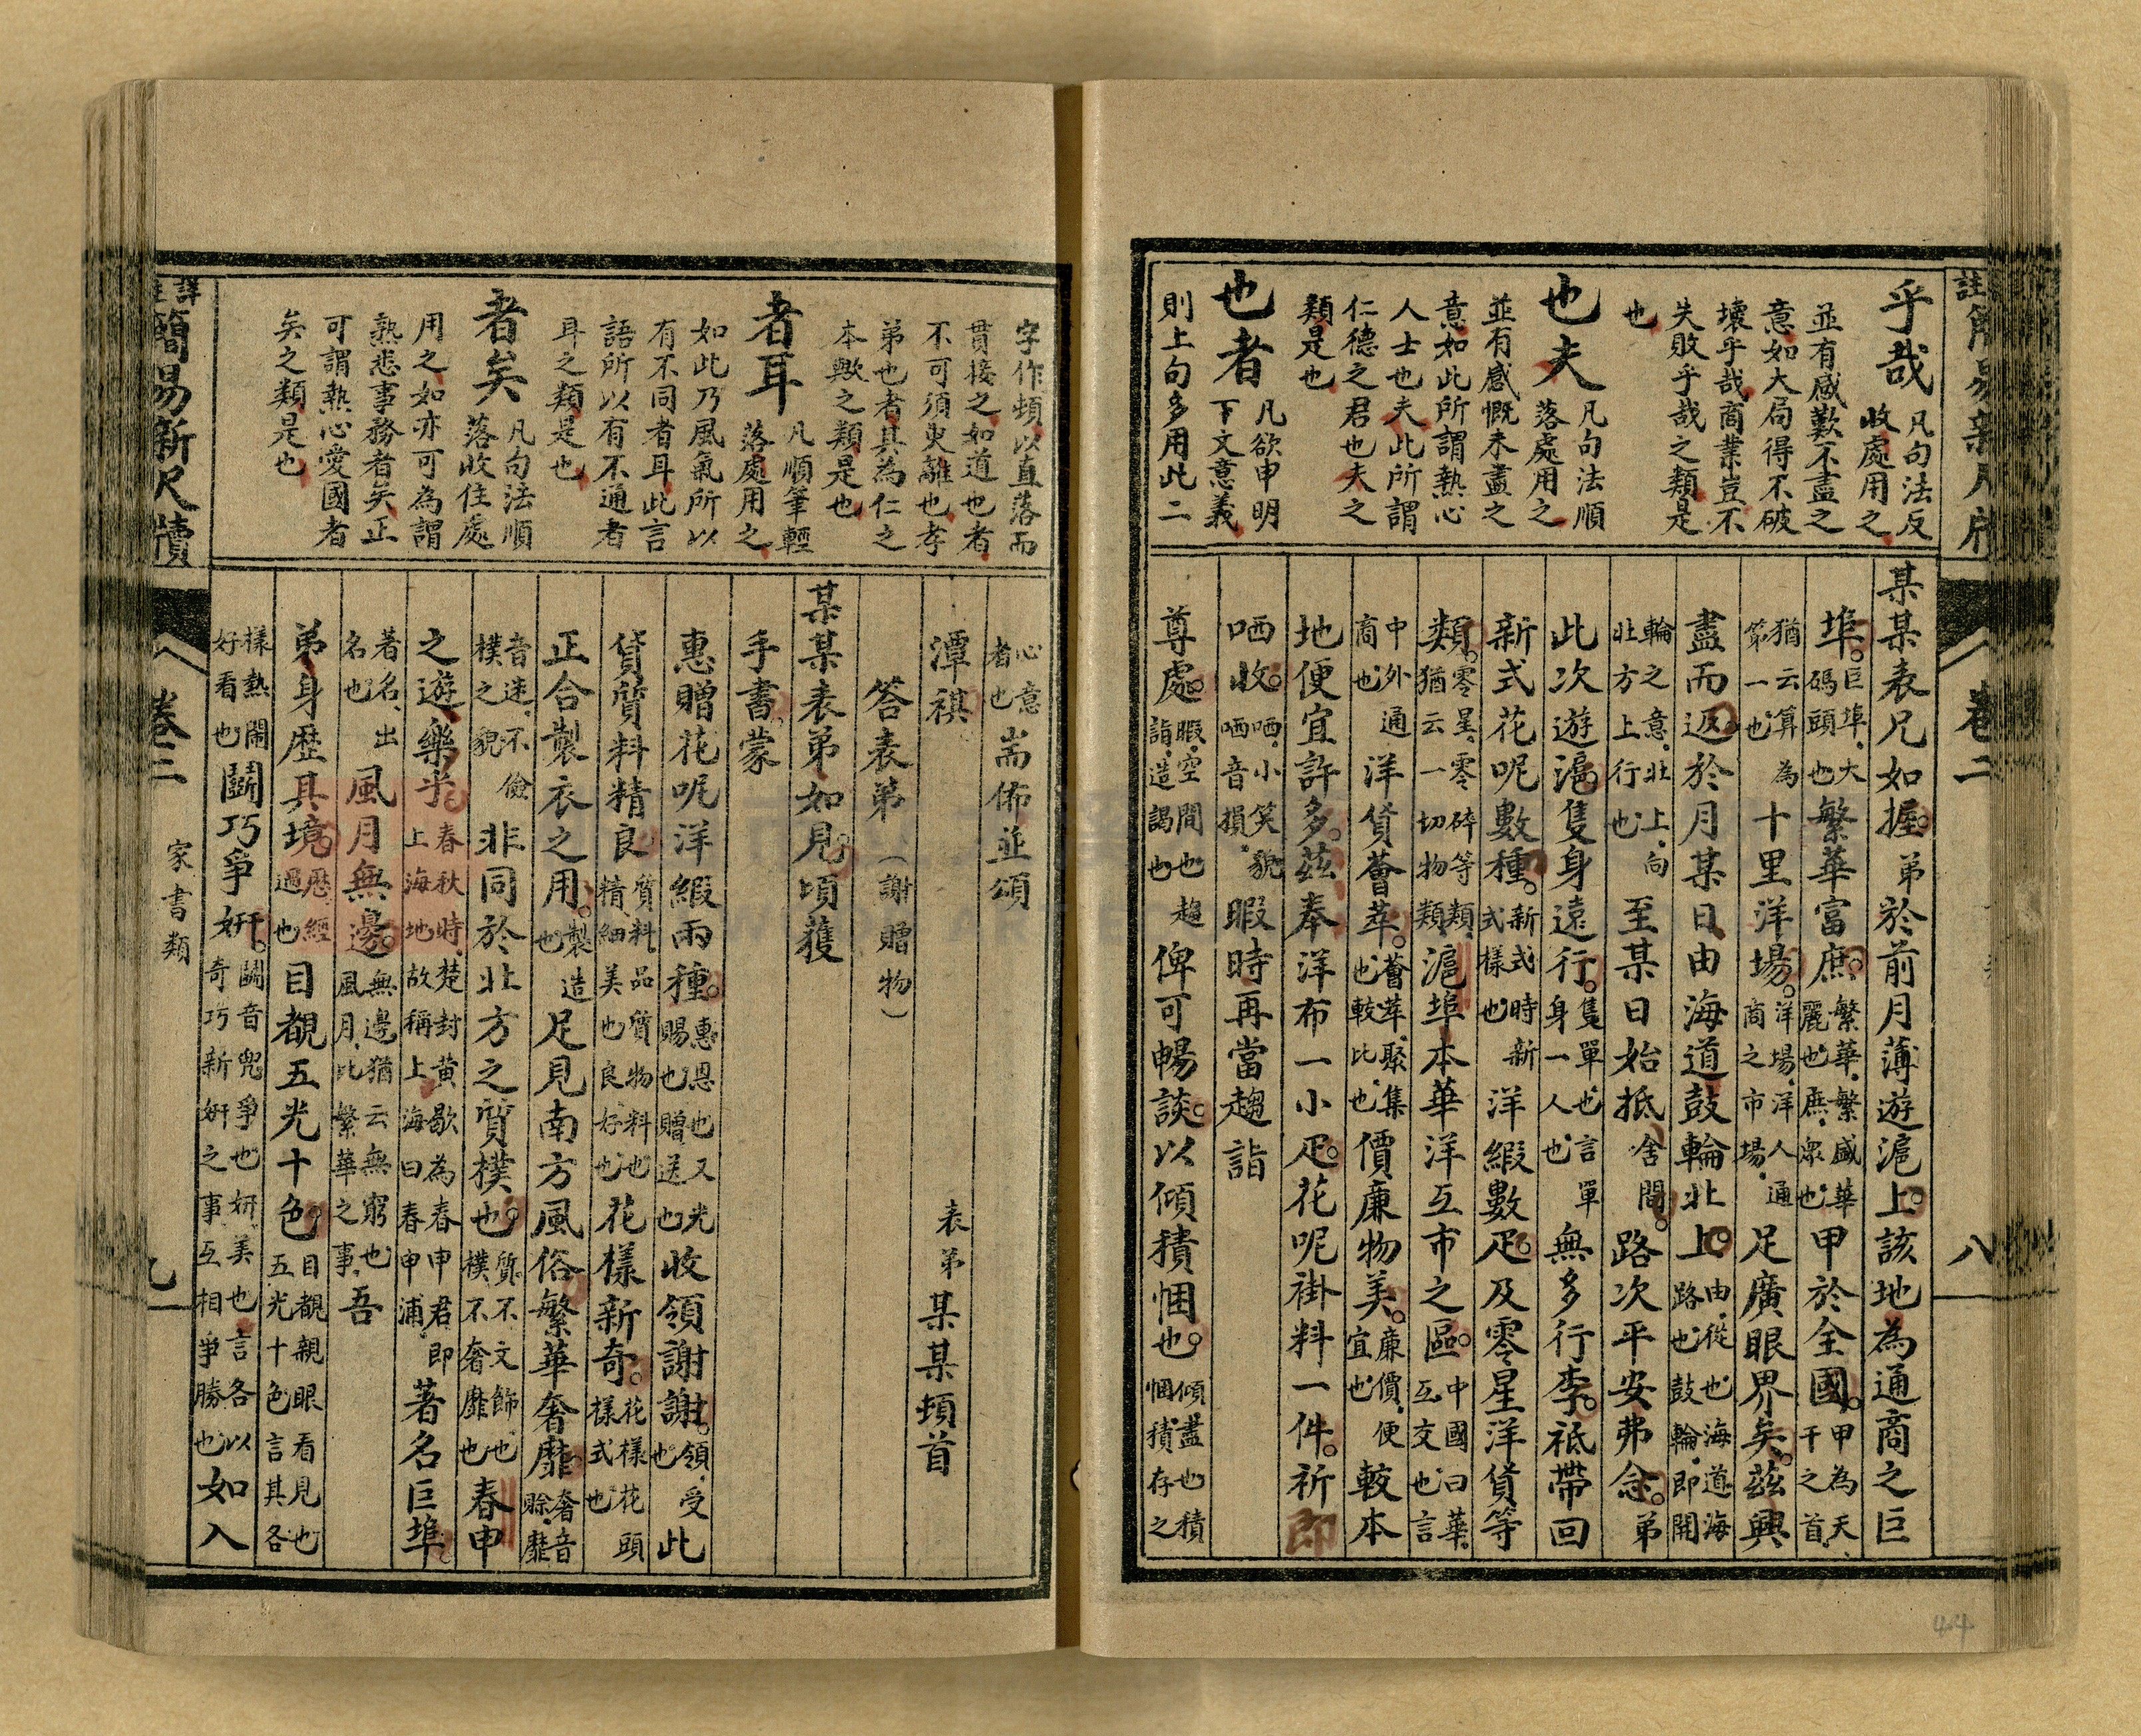 註簡易新尺牘
卷二
八
乎哉 凡句法反收處用之
並有感歎不盡之
意如大局得不破
壞乎哉商業豈不
失敗乎哉之類是
也
也夫 凡句法順落處用之
並有感慨未盡之
意如此所謂熱心
人士也夫此所謂
仁德之君也夫之
類是也
也者 凡欲申明下文意義
則上句多用此二
某某表兄如握。弟於前月薄遊滬上。該地為通商之巨
埠。巨埠、大碼頭也繁華富庶。繁華、繁盛華麗也、庶、眾也甲於全國。甲為天干之首、
猶云算為第一也十里洋場。洋場、洋人通商之市場、足廣眼界矣。茲興
盡而返。於月某日由海道鼓輪北上。由、從也、海道、海路也、鼓輪、即開
輪之意、北上、向北方上行也至某日始抵舍間。路次平安弗念。弟
此次遊滬隻身遠行。隻、單也、言單身一人也無多行李。祗帶回
新式花呢數種。新式、時新式樣也洋緞數疋。及零星洋貨等
類。零星、零碎等類、猶云一切物類、滬埠本華洋互市之區。中國曰華、互、交也、言
中外通商也洋貨薈萃。薈萃、聚集也、較、比也、價廉物美。廉價、便宜也較本
地便宜許多。茲奉洋布一小疋。花呢褂料一件。祈即
哂收。哂、小笑貌、哂音損、暇時再當趨詣
尊處。暇、空間也、趨詣、造謁也俾可暢談。以傾積悃也。傾、盡也、積悃、積存之
44
字作頓以直落而
貫接之如道也者
不可須臾離也孝
弟也者其為仁之
本歟之類是也
者耳 凡順筆輕落處用之
如此乃風氣所以
有不同者耳此言
語所以有不通者
耳之類是也
者矣 凡句法順落收住處
用之如亦可為謂
熟悉事務者矣正
可謂熱心愛國者
矣之類是也
心意者也耑佈並頌
潭祺 表弟某某頓首
答表弟(謝贈物)
某某表弟如見。頃獲
手書。蒙
惠贈花呢洋緞兩種。惠、恩也、又賜也、贈、送也光收領謝謝。領、受也此
貨質料精良質料、品質物料也、精、細美也、良、好也、花樣新奇。花樣、花頭樣式也
正合製衣之用。製、造也足見南方風俗繁華奢靡奢音賒、靡
音迷、不儉樸之貌非同於北方之質樸也。質、不文飾也、樸、不奢靡也春申
之遊樂乎。春秋時、楚封黃歇為春申君、即上海地、故稱上海曰春申浦、著名巨埠。
著名、出名也風月無邊。無邊、猶云無窮也、風月、比繁華之事、吾
弟身歷其境。歷、經過也目覩五光十色。目覩、親眼看見也、五光十色、言其各
樣熱鬧好看也鬬巧爭妍。鬬音兜、爭也、妍、美也、言各以奇巧新妍之事、互相爭勝也如入
詳註簡易新尺牘
卷二
家書類
九